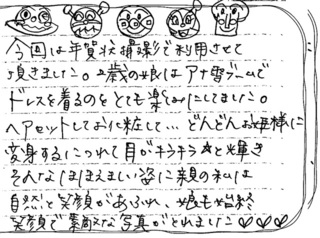 今回は年賀状撮影で利用させて
頂きました。2歳の娘はアナ雪ブームで
ドレスを着るのをとても楽しみにしてました。
ヘアセットしてお化粧して… どんどんお姫様に
変身するにつれて目がキラキラ☆と輝き
そんなほほえましい姿に親の私は
自然と笑顔があふれ、娘も始終
笑顔で素敵な写真がとれました♡♡♡